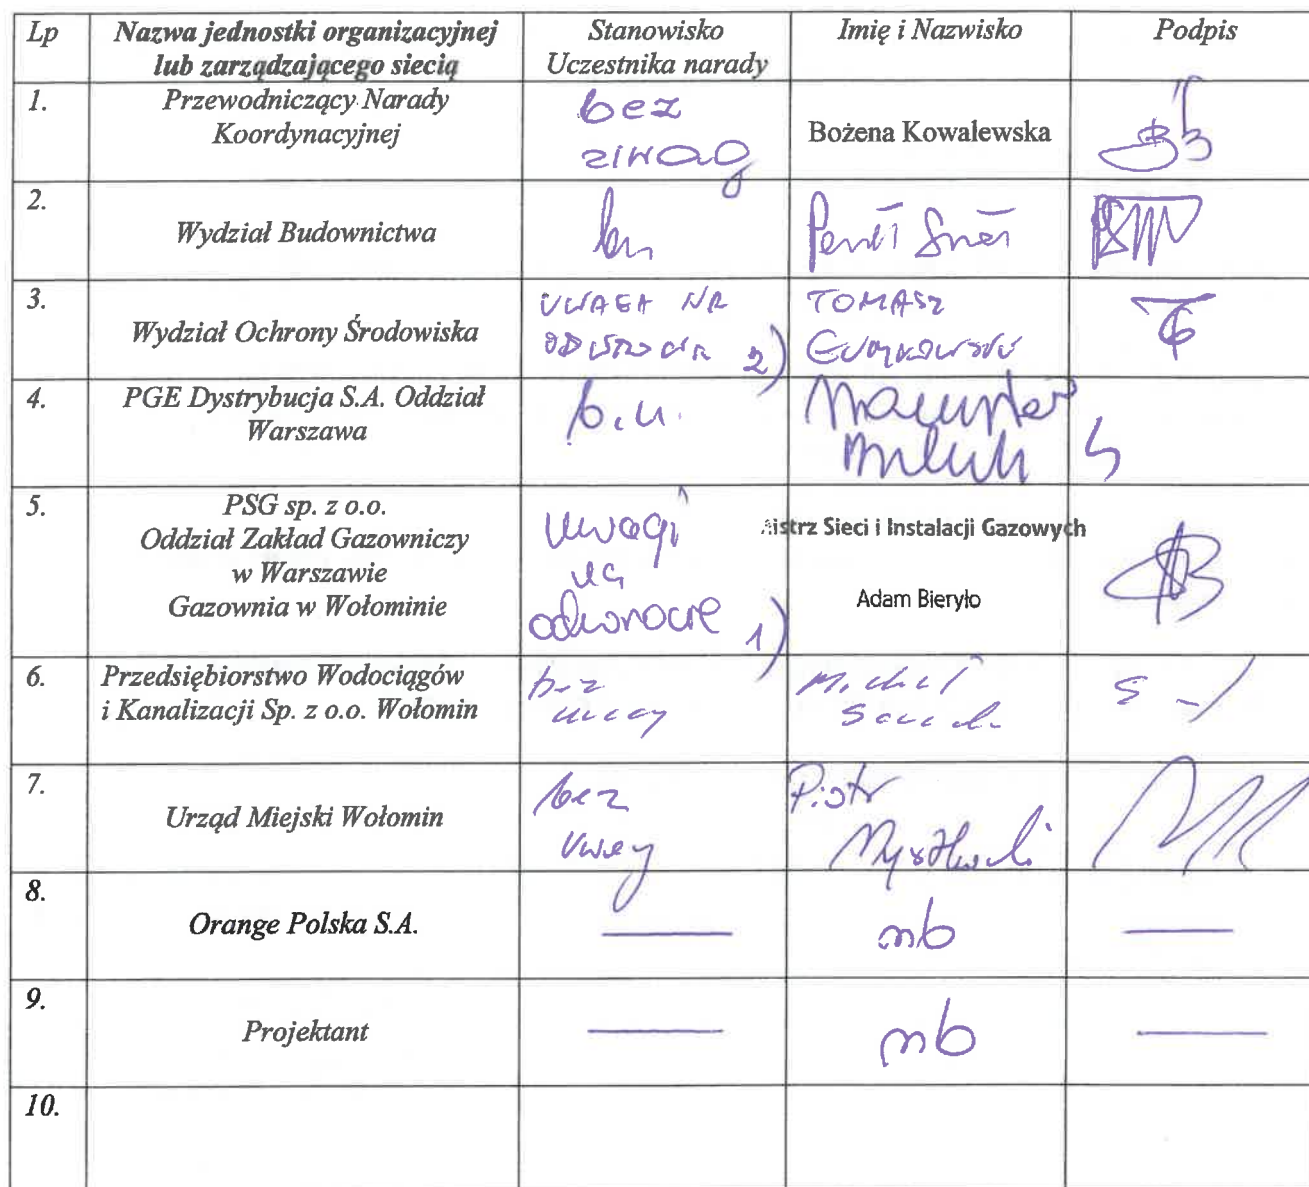 Lp Nazwa jednostki organizacyjnej lub zarządzającego siecią Stanowisko Uczestnika narady Imię i Nazwisko Podpis
1. Przewodniczący Narady Koordynacyjnej bez uwag Bożena Kowalewska
2. Wydział Budownictwa bu
3. Wydział Ochrony Środowiska UWAGA NA ODWROCIE 2) TOMASZ
4. PGE Dystrybucja S.A. Oddział Warszawa b.u.
5. PSG sp. z o.o. Oddział Zakład Gazowniczy w Warszawie Gazownia w Wołominie uwagi na odwrocie 1) istrz Sieci i Instalacji Gazowych Adam Bieryło
6. Przedsiębiorstwo Wodociągów i Kanalizacji Sp. z o.o. Wołomin bez uwag Michał
7. Urząd Miejski Wołomin bez uwag Piotr
8. Orange Polska S.A. — nb —
9. Projektant — nb —
10.